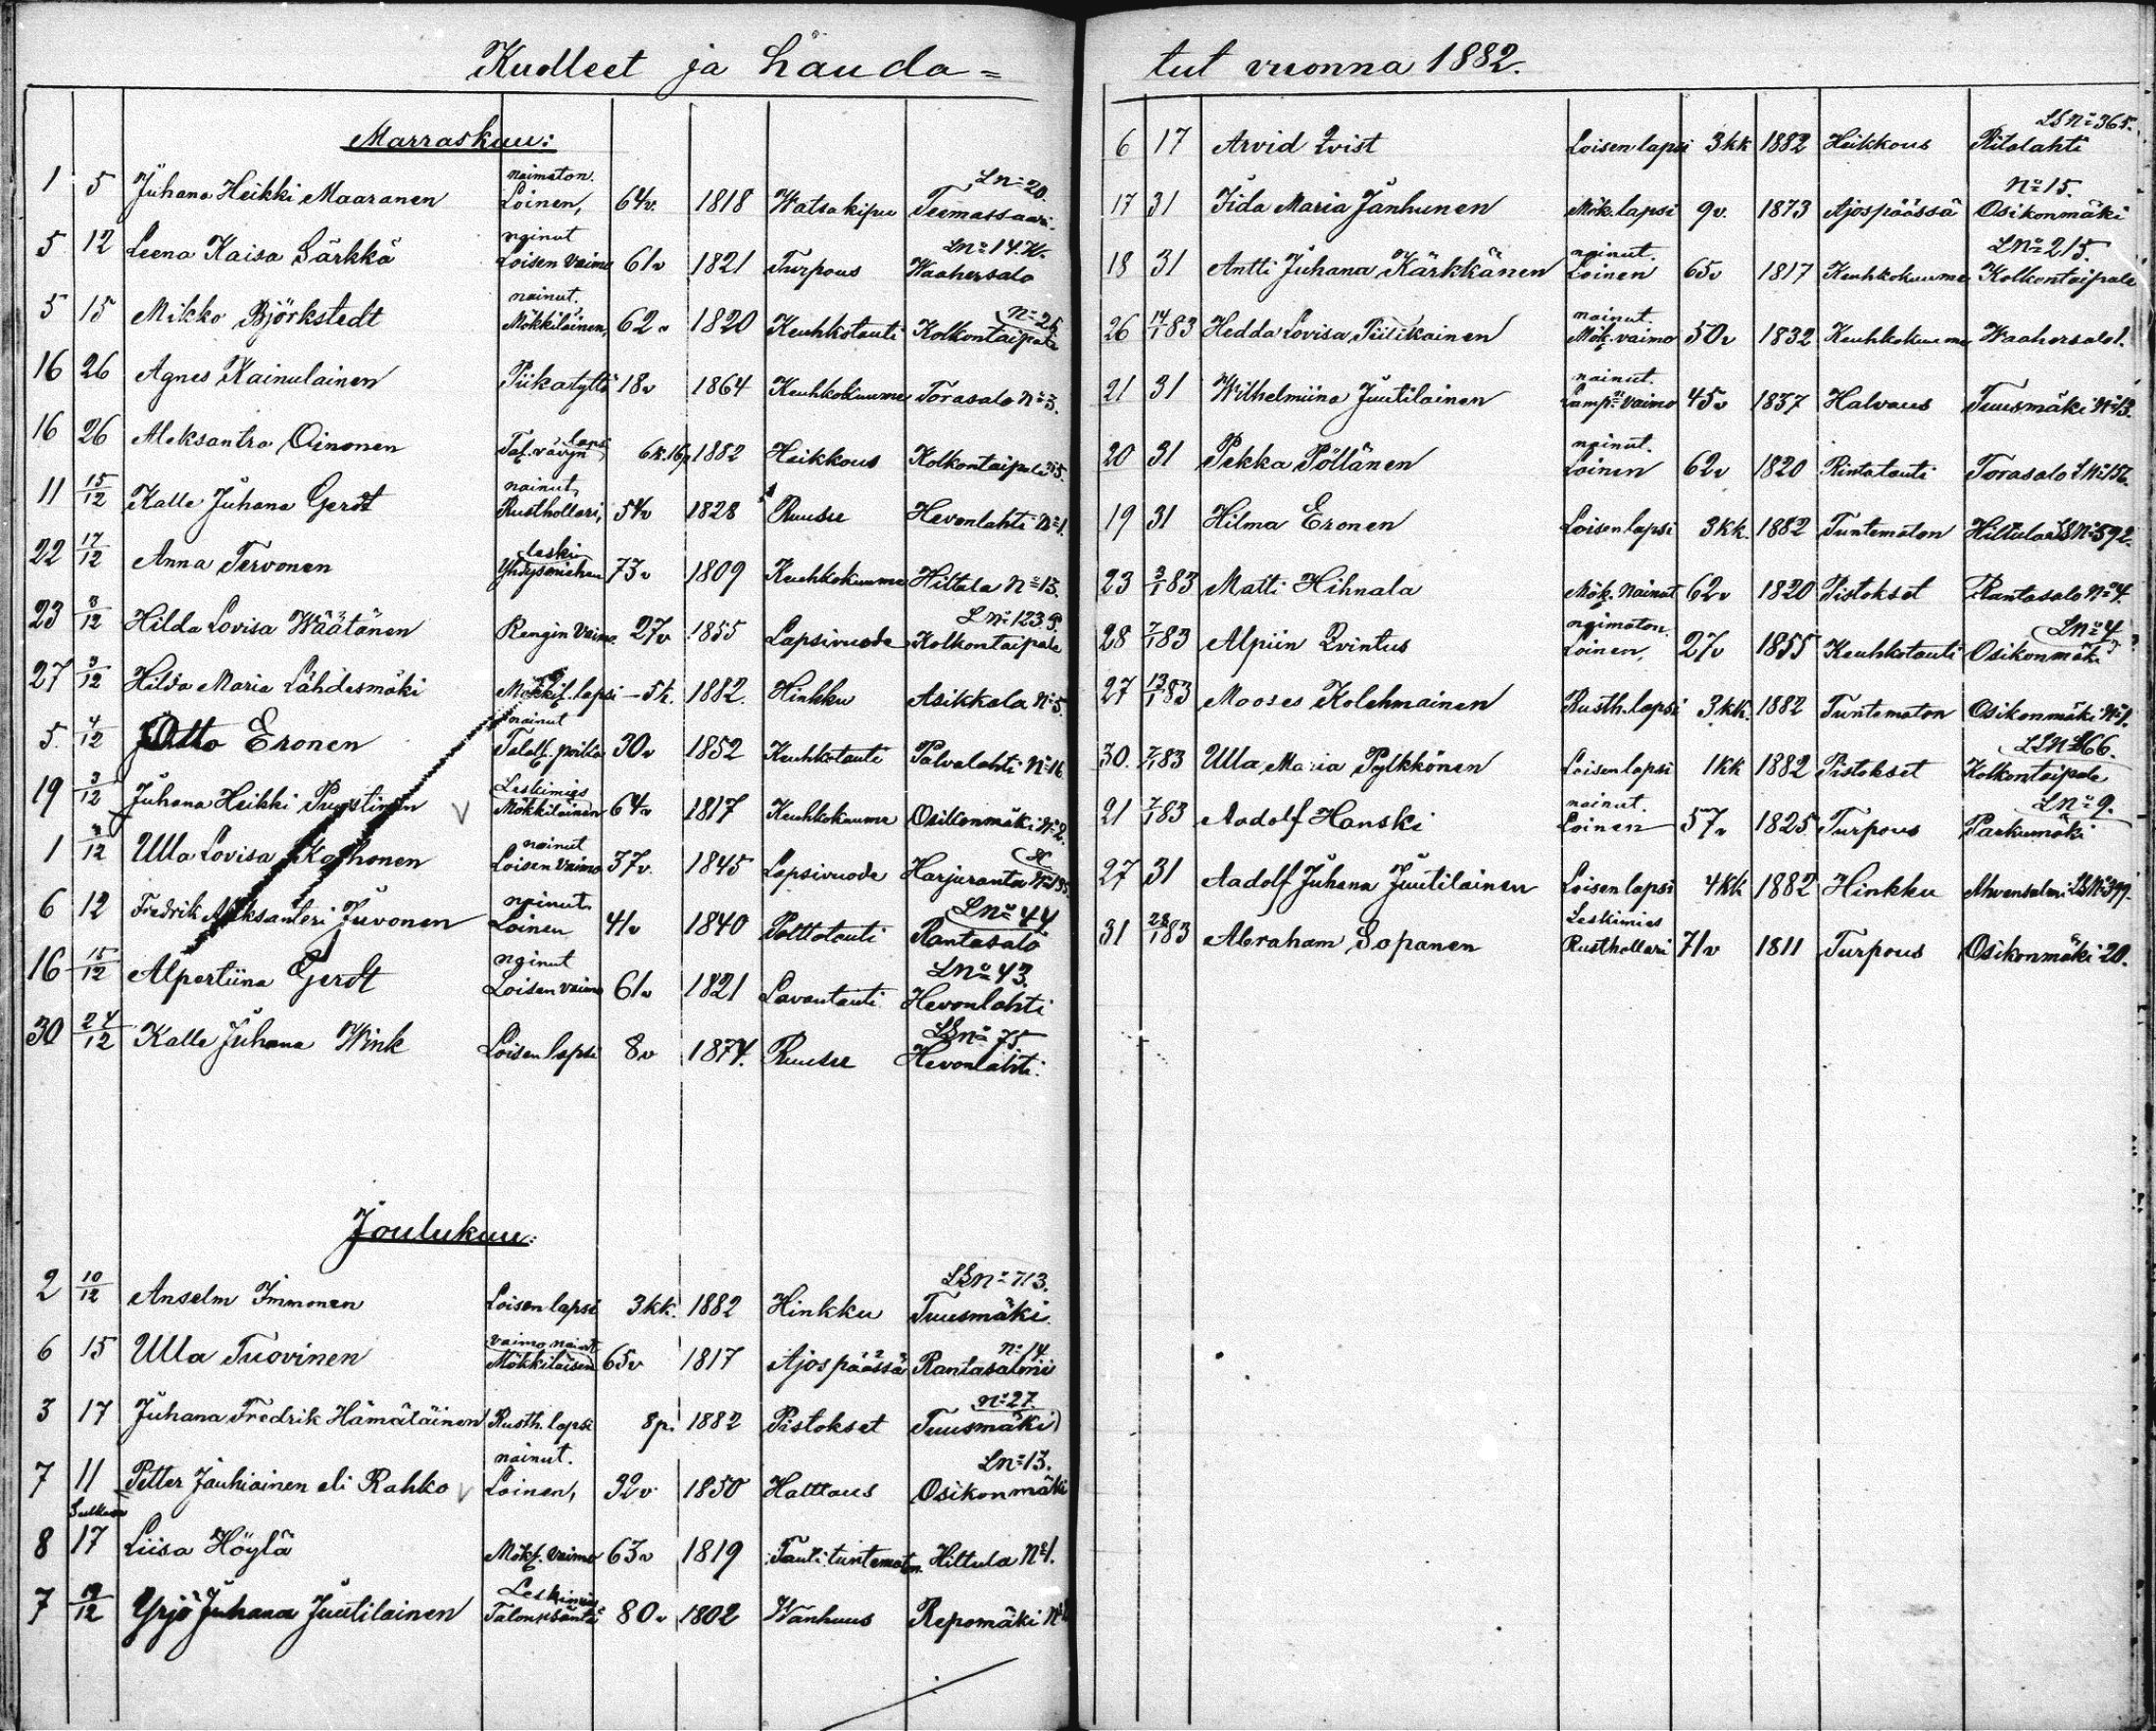 Kuolleet ja hauda=
Marraskuu:
1 5 Juhana Heikki Maaranen naimaton. Loinen, 64v. 1818 Watsakipu L No 20. Teemassaari.
5 12 Leena Kaisa Särkkä nainut Loisen vaimo 61v 1821 Turpous L No 14. Waahersalo
5 15 Mikko Björkstedt nainut. Mökkiläinen, 62v 1820 Keuhkotauti No 25 Kolkontaipale
16 26 Agnes Kainulainen Piikatyttö 18v 1864 Keuhkokuume Torasalo No 3.
16 26 Aleksantra Oinonen Tal. vävyn lapsi 6k. 16p. 1882 Heikkous Kolkontaipale 35.
11 15/12 Kalle Juhana Gerdt nainut, Rusthollari, 54v 1828 Ruusu Hevonlahti No 1.
22 17/12 Anna Tervonen leski Yhdysmiehen 73v 1809 Keuhkokuume Hiltula No 13.
23 8/12 Hilda Lovisa Wäätänen Rengin vaimo. 27v 1855 Lapsivuode L No 123. S. Kolkontaipale
27 3/12 Hilda Maria Lähdesmäki Mökkil. lapsi 5k. 1882. Hinkku Asikkala No 5.
5. 4/12 Otto Eronen nainut Talol. poika 30v 1852 Keuhkotauti Palvalahti No 16
19 3/12 Juhana Heikki Puustinen Leskimies Mökkiläinen 64v 1817 Keuhkokuume Osikonmäki No 2.
1 /12 Ulla Lovisa Kaihonen nainut Loisen vaimo 37v. 1845 Lapsivuode Harjuranta
6 12 Fredrik Aleksanteri Juvonen nainut. Loinen 41v 1840 Polttotauti L No 44 Rantasalo
16 15/12 Alpertiina Gerdt nainut Loisen vaimo 61v 1821 Lavantauti L No 43. Hevonlahti
30 24/12 Kalle Juhana Wink Loisen lapsi 8v 1874. Ruusu LS No 75 Hevonlahti.
Joulukuu:
2 10/12 Anselm Immonen Loisen lapsi 3kk. 1882 Hinkku LS No 713. Tuusmäki.
6 15 Ulla Tuovinen vaimo nainut Mökkiläisen 65v 1817 Ajos päässä No 14 Rantasalmi
3 17 Juhana Fredrik Hämäläinen Rusth. lapsi 8p. 1882 Pistokset No 27. Tuusmäki
7 11 Petter Jauhiainen eli Rahko nainut. Loinen, 32v 1850 Halttaus L No 13. Osikonmäki
8 17 Liisa Höylä Mökl. vaimo 63v 1819 Tauti tuntematon Hiltula No 1.
7 19/12 Yrjö Juhana Juutilainen Leskimies Talon isäntä 80v 1802 Wanhuus Repomäki
tut vuonna 1882.
6 17 Arvid Qvist Loisen lapsi 3kk 1882 Heikkous LS No 365. Ritolahti
17 31 Iida Maria Janhunen Mök. lapsi 9v. 1873 Ajos päässä No 15. Osikonmäki
18 31 Antti Juhana Kärkkänen nainut. Loinen 65v 1817 Keuhkokuume L No 215. Kolkontaipale
26 14/1 83 Hedda Lovisa Piilikainen nainut. Mök. vaimo 50v 1832 Keuhkokuume Waahersalo 1.
21 31 Wilhelmiina Juutilainen nainut. Lamp. vaimo 45v 1837 Halvaus Tuusmäki No 13.
20 31 Pekka Pöllänen nainut. Loinen 62v 1820 Rintatauti Torasalo L No 156.
19 31 Hilma Eronen Loisen lapsi 3kk. 1882 Tuntematon Hiltula LS No 592.
23 3/1 83 Matti Hihnala Mök. nainut 62v 1820 Pistokset Rantasalo No 4.
28 7/1 83 Alpiin Qvintus naimaton. Loinen, 27v 1855 Keuhkotauti L No 4 Osikonmäki
27 13/1 83 Mooses Kolehmainen Rusth. lapsi 3kk. 1882 Tuntematon Osikonmäki No 1.
30. 7/1 83 Ulla Maria Pylkkönen Loisen lapsi 1kk 1882 Pistokset Kolkontaipale
21 7/1 83 Aadolf Hanski nainut. Loinen 57v 1825 Turpous L No 9. Parkumäki
27 31 Aadolf Juhana Juutilainen Loisen lapsi 4kk 1882 Hinkku Ahvensalmi LS No 399.
31 28/1 83 Abraham Sopanen Leskimies Rusthollari 71v 1811 Turpous Osikonmäki 20.